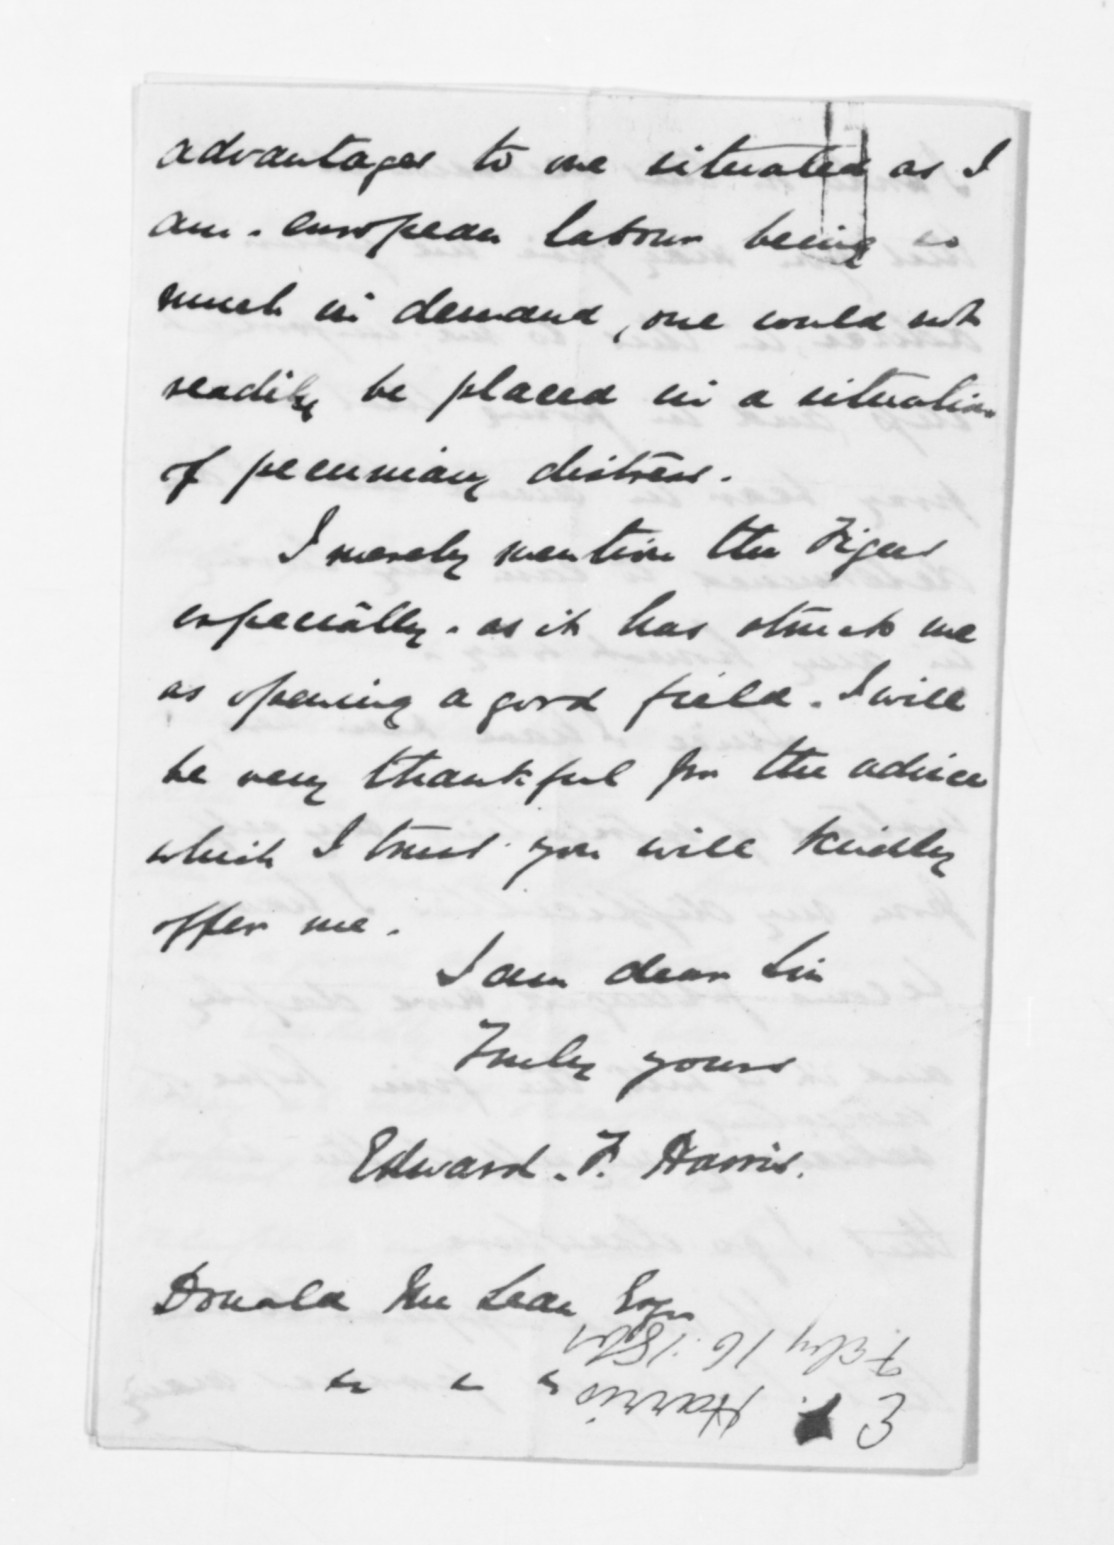 advantages to one situated as I
am. european labour being so
much in demand, one could not
readily be placed in a situation
of pecuniary distress.
I merely mention the Figees
especially. as it has struck me
as opening a good field. I will
be very thankful for the advice
which I trust you will kindly
offer me.
I am dear Sir
Truly yours
Edward. F. Harris.
Donald Mc Lean Esqr
" " "
E Harris
Feby 16. 1861